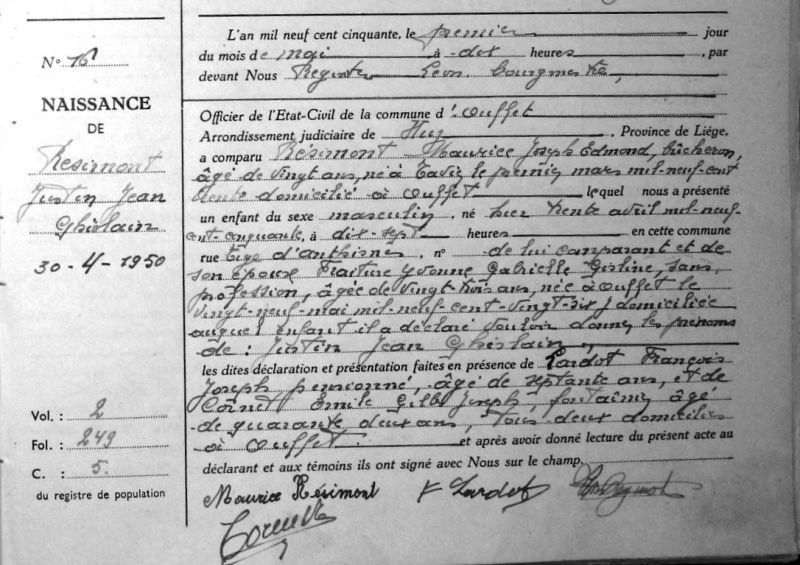 N° 16
NAISSANCE
DE
Résimont
Justin Jean
Ghislain
30-4-1950
Vol. : 2
Fol. : 249
C. : 5.
du registre de population
L'an mil neuf cent cinquante, le premier jour
du mois de mai à dix heures, par
devant Nous Léon, bourgmestre,
Officier de l'Etat-Civil de la commune d'Ouffet
Arrondissement judiciaire de Huy, Province de Liége,
a comparu Résimont Maurice Joseph Edmond, bûcheron,
âgé de vingt ans, né à le premier mars mil-neuf-cent
trente domicilié à Ouffet lequel nous a présenté
un enfant du sexe masculin, né hier trente avril mil-neuf-
cent-cinquante, à dix-sept heures en cette commune
rue Tige d'anthisnes, n° de lui comparant et de
son épouse Fraiture Yvonne Gabrielle, sans
profession, âgée de vingt-trois ans, née à Ouffet le
vingt-neuf-mai mil-neuf-cent-vingt-six, domiciliée
auquel enfant il a déclaré vouloir donner les prénoms
de : Justin Jean Ghislain.
les dites déclaration et présentation faites en présence de Lardot François
Joseph pensionné, âgé de septante ans, et de
Cornet Emile Joseph, âgé
de quarante deux ans, tous deux domiciliés
à Ouffet. et après avoir donné lecture du présent acte au
déclarant et aux témoins ils ont signé avec Nous sur le champ.
Maurice Résimont F Lardot